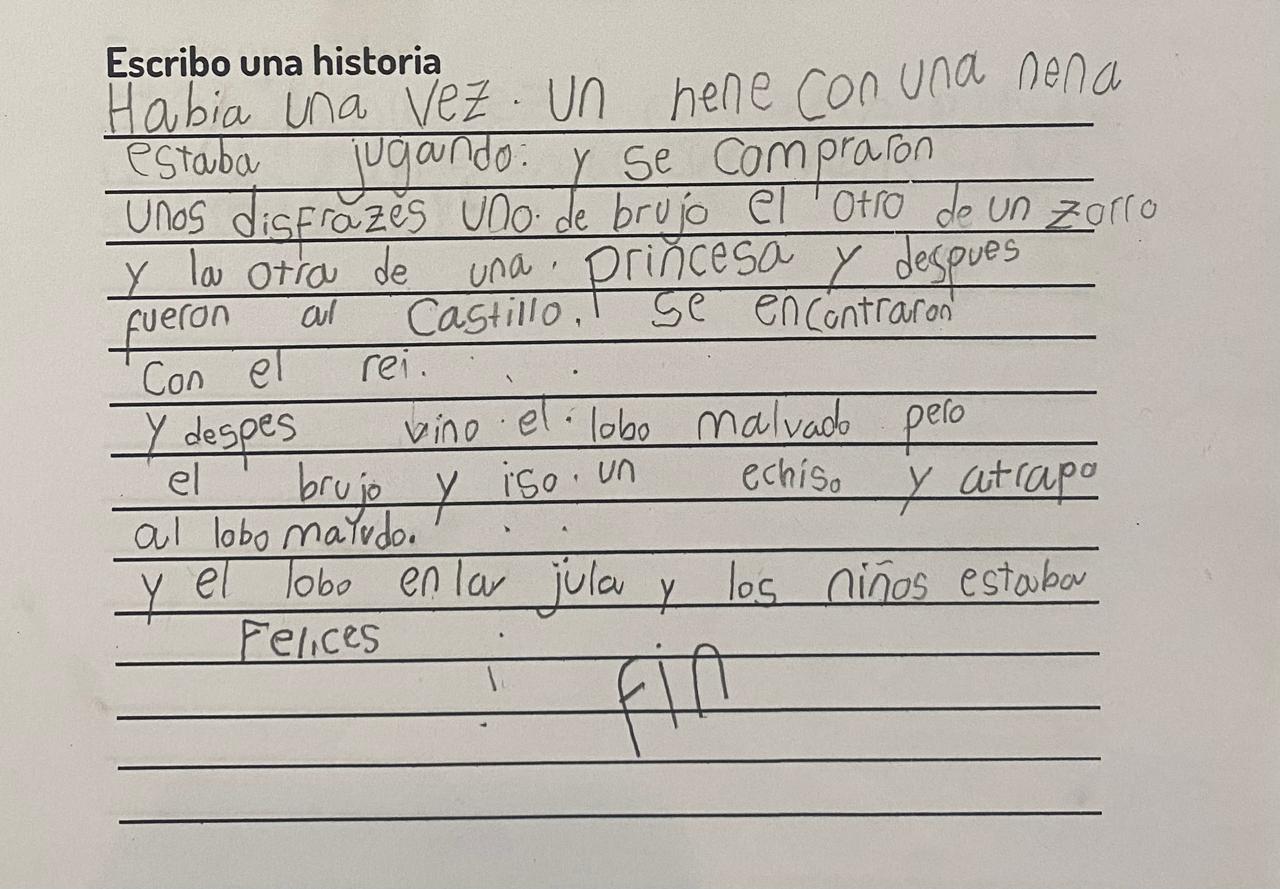 Escribo una historia
Habia una vez. un nene con una nena
estaba jugando: y se compraron
unos disfrazes uno. de brujo el otro de un zorro
y la otra de una. princesa y despues
fueron al castillo. se encontraron
con el rei.
y despes vino el lobo malvado pero
el brujo y iso. un echiso y atrapo
al lobo malvdo.
y el lobo en lar jula y los niños estaba
Felices
fin